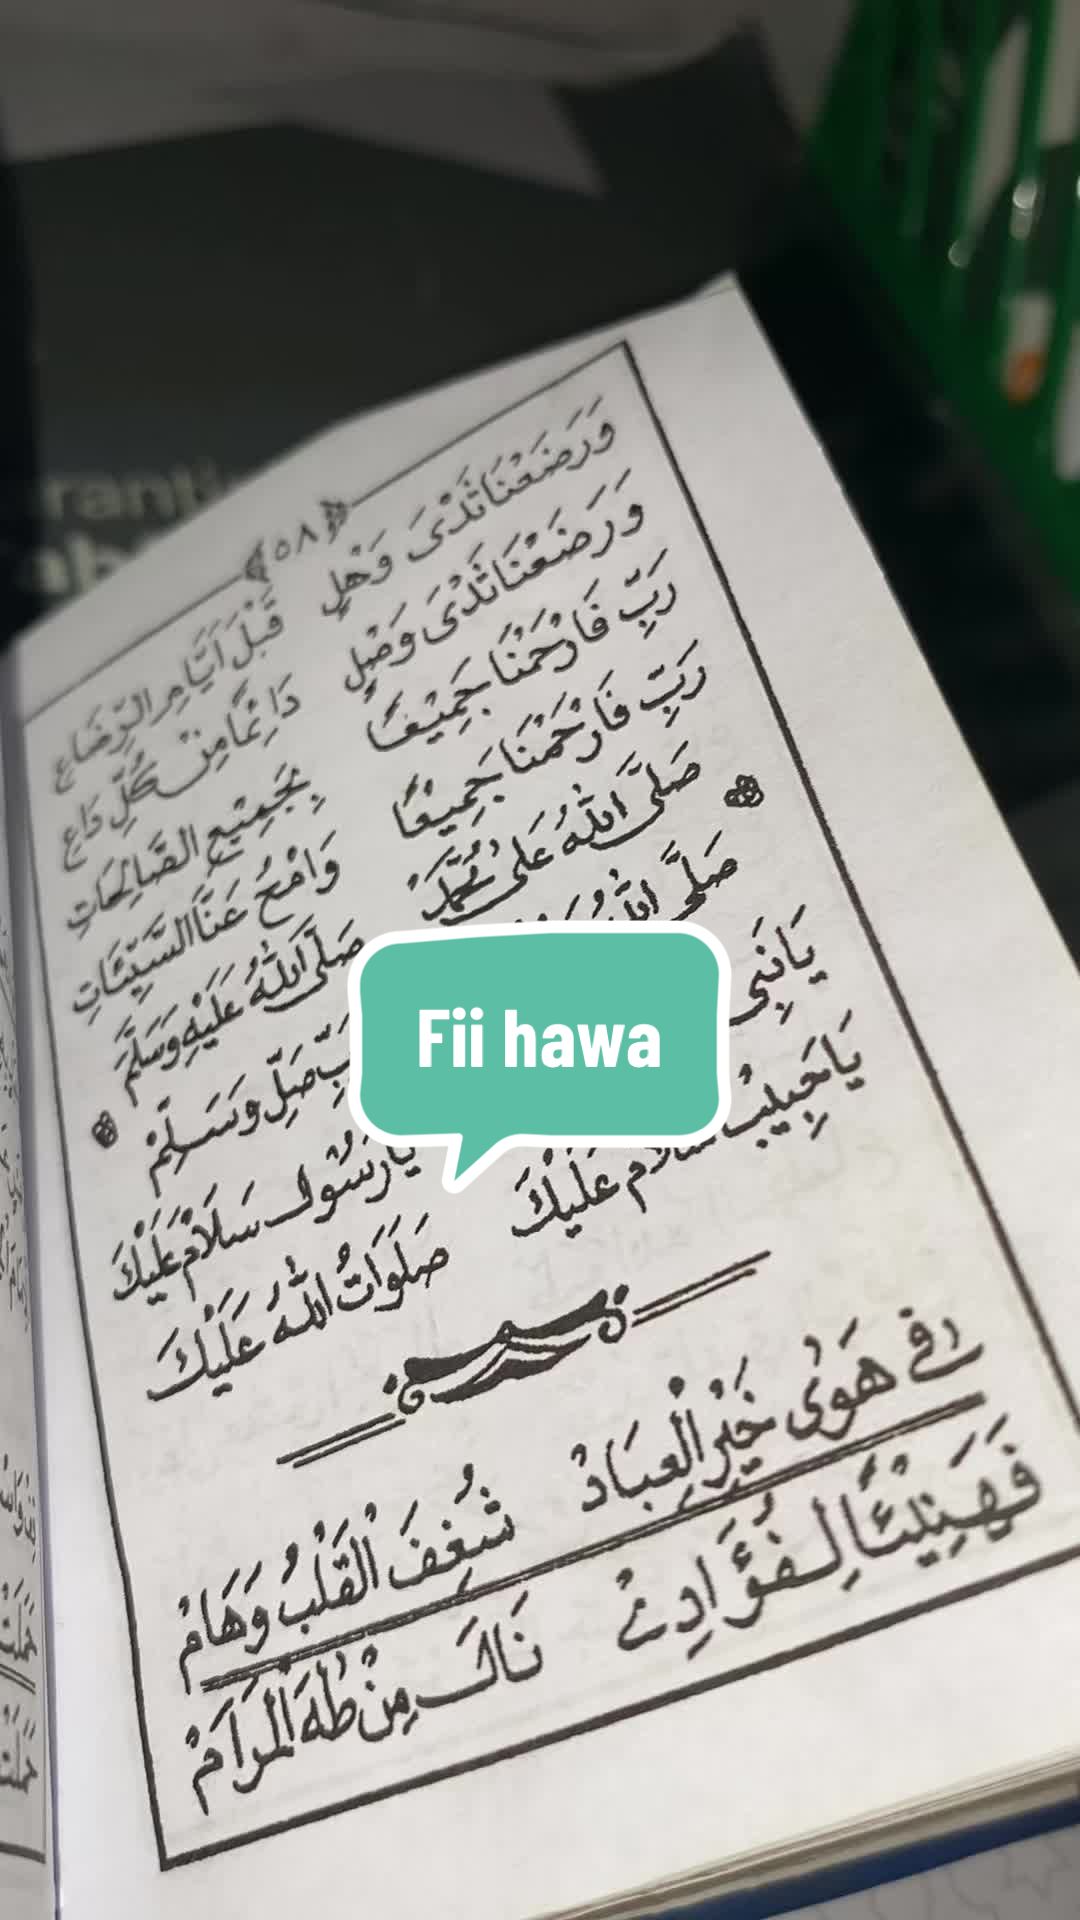 ﴿٥٨﴾
وَرَضَعْنَا ثَدْىَ وَهْلٍ قَبْلَ اَيَّامِ الرِّضَاعِ
وَرَضَعْنَا ثَدْىَ وَصْلٍ دَائِمًا مِنْ كُلِّ دَاعٍ
رَبِّ فَارْحَمْنَا جَمِيْعًا بِجَمِيْعِ الصَّالِحَاتِ
رَبِّ فَارْحَمْنَا جَمِيْعًا وَامْحُ عَنَّا السَّيِّئَاتِ
صَلَّى اللّٰهُ عَلَى مُحَمَّدْ صَلَّى اللّٰهُ عَلَيْهِ وَسَلَّمَ
صَلَّى اللّٰهُ صَلِّ وَسَلِّمْ
يَانَبِى يَارَسُوْل سَلَامْ عَلَيْكَ
يَاحَبِيْب سَلَامْ عَلَيْكَ صَلَوَاتُ اللّٰه عَلَيْكَ
فِيْ هَوٰى خَيْرِ الْعِبَادْ شُغِفَ الْقَلْبُ وَهَامْ
فَهَنِيْئًا لِفُؤَادِيْ نَالَ مِنْ طٰهَ الْمَرَامْ
Fii hawa